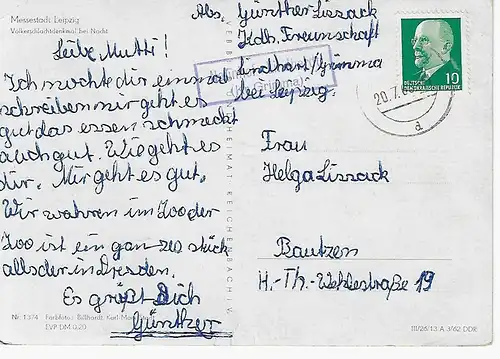 Messestadt Leipzig
Völkerschlachtdenkmal bei Nacht
Liebe Mutti!
Ich möchte dir einmal
schreiben mir geht es
gut das essen schmeckt
auch gut. Wie geht es
dir. Mir geht es gut.
Wir wahren im Zoo der
Zoo ist ein gan zes stück
alls der in Dresden.
Es grüßt Dich
Günther
Nr. 1374 Farbfoto: Billhardt, Karl-Marx-Stadt
EVP DM 0,20
REICHENBACH I. V.
Abs. Günther Lissack
Kdh. Freunschaft
Lindhart/Grimma
bei Leipzig.
DEUTSCHE
DEMOKRATISCHE REPUBLIK
10
20.7.
d
Frau
Helga Lissack
Bautzen
H.-Th.-Wehlestraße 19
III/26/13 A 3/62 DDR